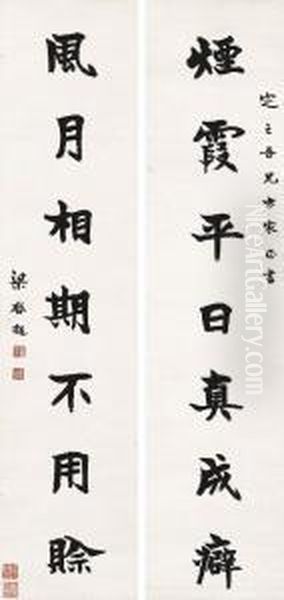 定之吾兄方家正書
煙霞平日真成癖
風月相期不用賒
梁啓超
NiceArtGallery.com